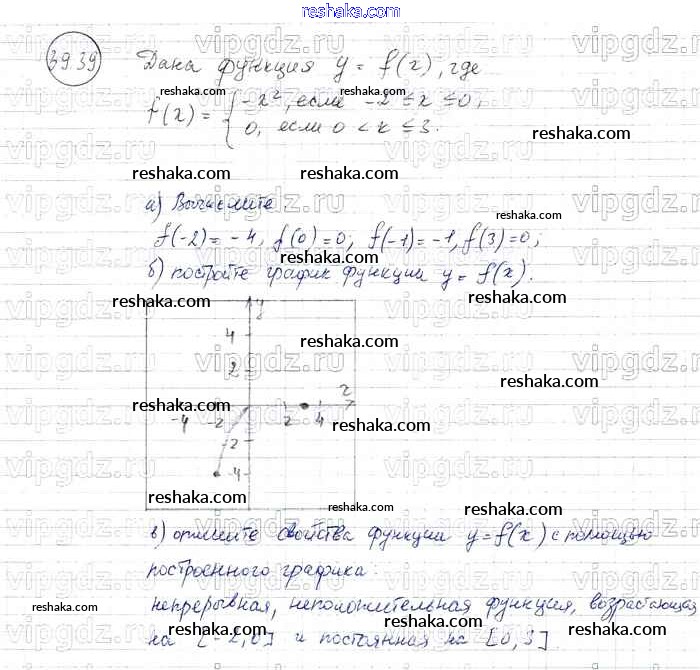 reshaka.com
39.39 Дана функция y = f(x), где
f(x) = { -x², если -2 ≤ x ≤ 0;
0, если 0 < x ≤ 3.
а) Вычислите
f(-2) = -4, f(0) = 0; f(-1) = -1, f(3) = 0;
б) постройте график функции y = f(x).
y
4
2
x
-4 -2 2 4
-2
-4
в) опишите свойства функции y = f(x) с помощью
построенного графика:
непрерывная, неположительная функция, возрастающая
на [-2, 0] и постоянная на [0, 3].